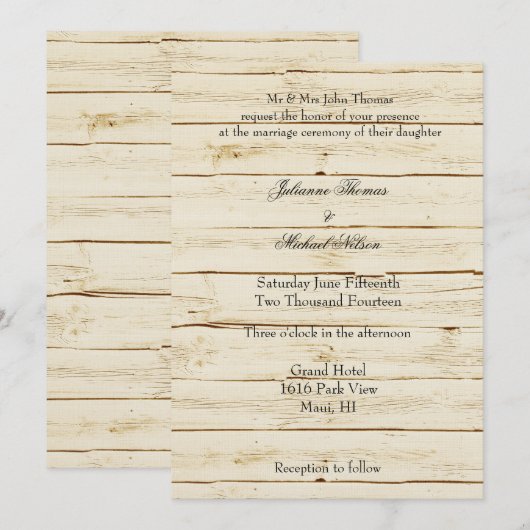 Mr & Mrs John Thomas
request the honor of your presence
at the marriage ceremony of their daughter
Julianne Thomas
&
Michael Nelson
Saturday June Fifteenth
Two Thousand Fourteen
Three o'clock in the afternoon
Grand Hotel
1616 Park View
Maui, HI
Reception to follow